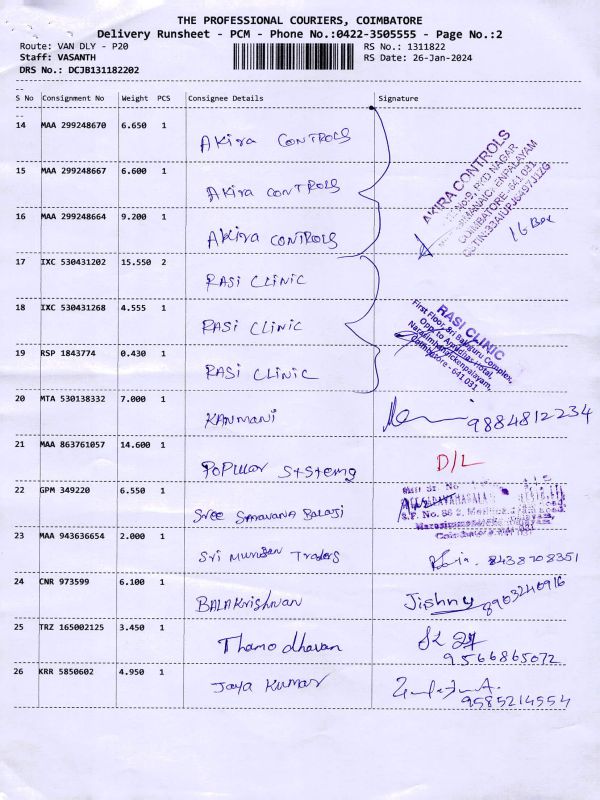 THE PROFESSIONAL COURIERS, COIMBATORE
Delivery Runsheet - PCM - Phone No.:0422-3505555 - Page No.:2
Route: VAN DLY - P20 RS No.: 1311822
Staff: VASANTH RS Date: 26-Jan-2024
DRS No.: DCJB131182202
S No Consignment No Weight PCS Consignee Details Signature
14 MAA 299248670 6.650 1 AKira CONTROLS
15 MAA 299248667 6.600 1 AKira CONTROLS
16 MAA 299248664 9.200 1 AKira CONTROLS
AKIRA CONTROLS
COIMBATORE - 641 031
16 Box
17 IXC 530431202 15.550 2 RASi CLINIC
18 IXC 530431268 4.555 1 RASi CLINIC
19 RSP 1843774 0.430 1 RASi CLINIC
RASI CLINIC
First Floor, Sri Balaguru Complex,
Narasimhanaickenpalayam,
Coimbatore - 641 031
20 MTA 530138332 7.000 1 KANMANI 9884812234
21 MAA 863761057 14.600 1 POPULAR SYSTEMS D/L
22 GPM 349220 6.550 1 Sree Saravana Balaji
Coimbatore
23 MAA 943636654 2.000 1 Sri Murugan Traders 8438708351
24 CNR 973599 6.100 1 BALAKrishnan Jishny 8903240916
25 TRZ 165002125 3.450 1 Thamodharan 9566865072
26 KRR 5850602 4.950 1 Jaya Kumar 9585214554